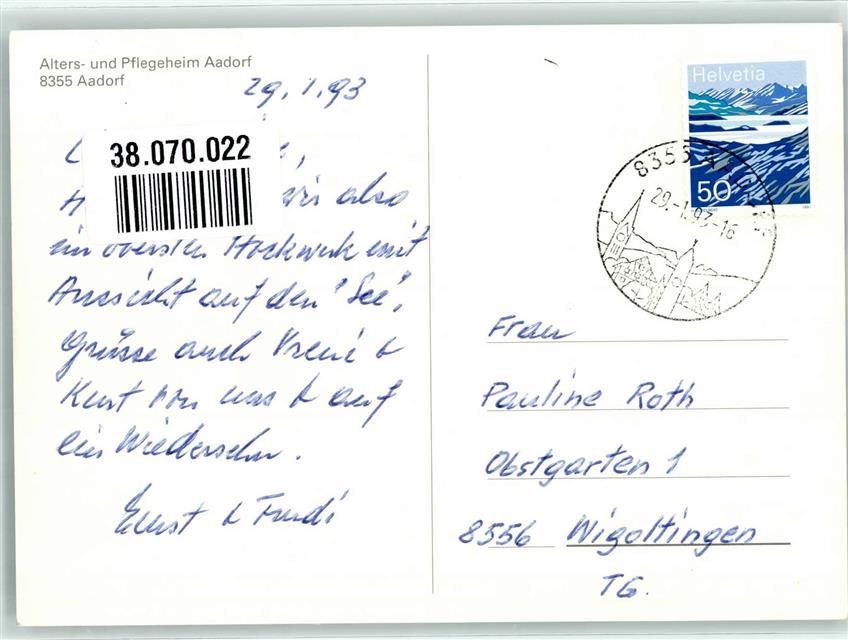 Alters- und Pflegeheim Aadorf
8355 Aadorf
29.1.93
38.070.022
wir also
im obersten Stockwerk mit
Aussicht auf den "See".
Grüsse auch Vreni &
Kurt von uns & auf
ein Wiedersehn.
Ernst & Trudi
Helvetia
50
8355 AADORF
29.-1.93-16
Frau
Pauline Roth
Obstgarten 1
8556 Wigoltingen
TG.